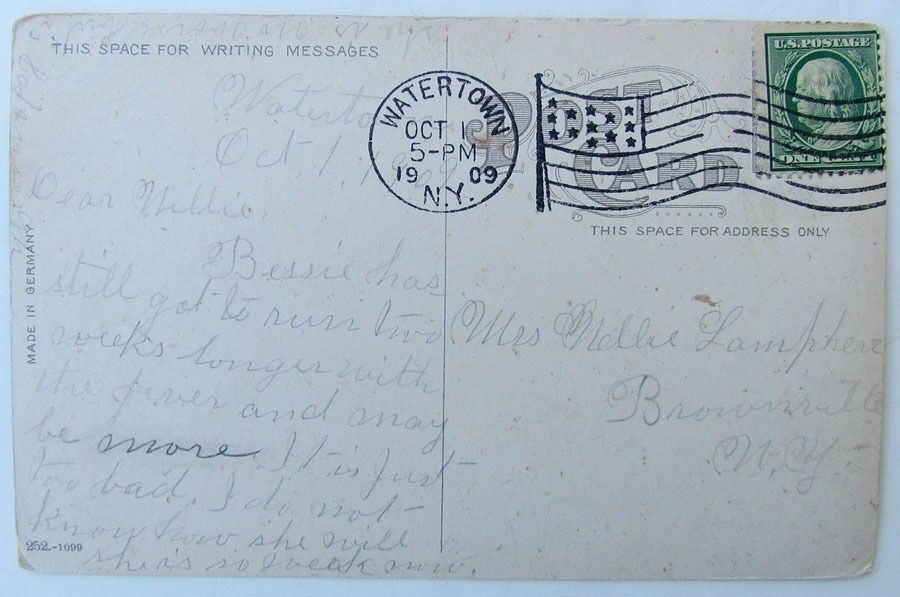 THIS SPACE FOR WRITING MESSAGES
Oct 1,
Dear Nellie,
Bessie has
still got to run two
weeks longer with
the fever and may
be more. It is Just
too bad. I do not
know how she will
she is so weak now.
MADE IN GERMANY
252.-1099
WATERTOWN
OCT 1
5-PM
19 09
N.Y.
POST
CARD
U.S. POSTAGE
ONE
THIS SPACE FOR ADDRESS ONLY
Mrs Nellie Lamphere
Brownville
N.Y.